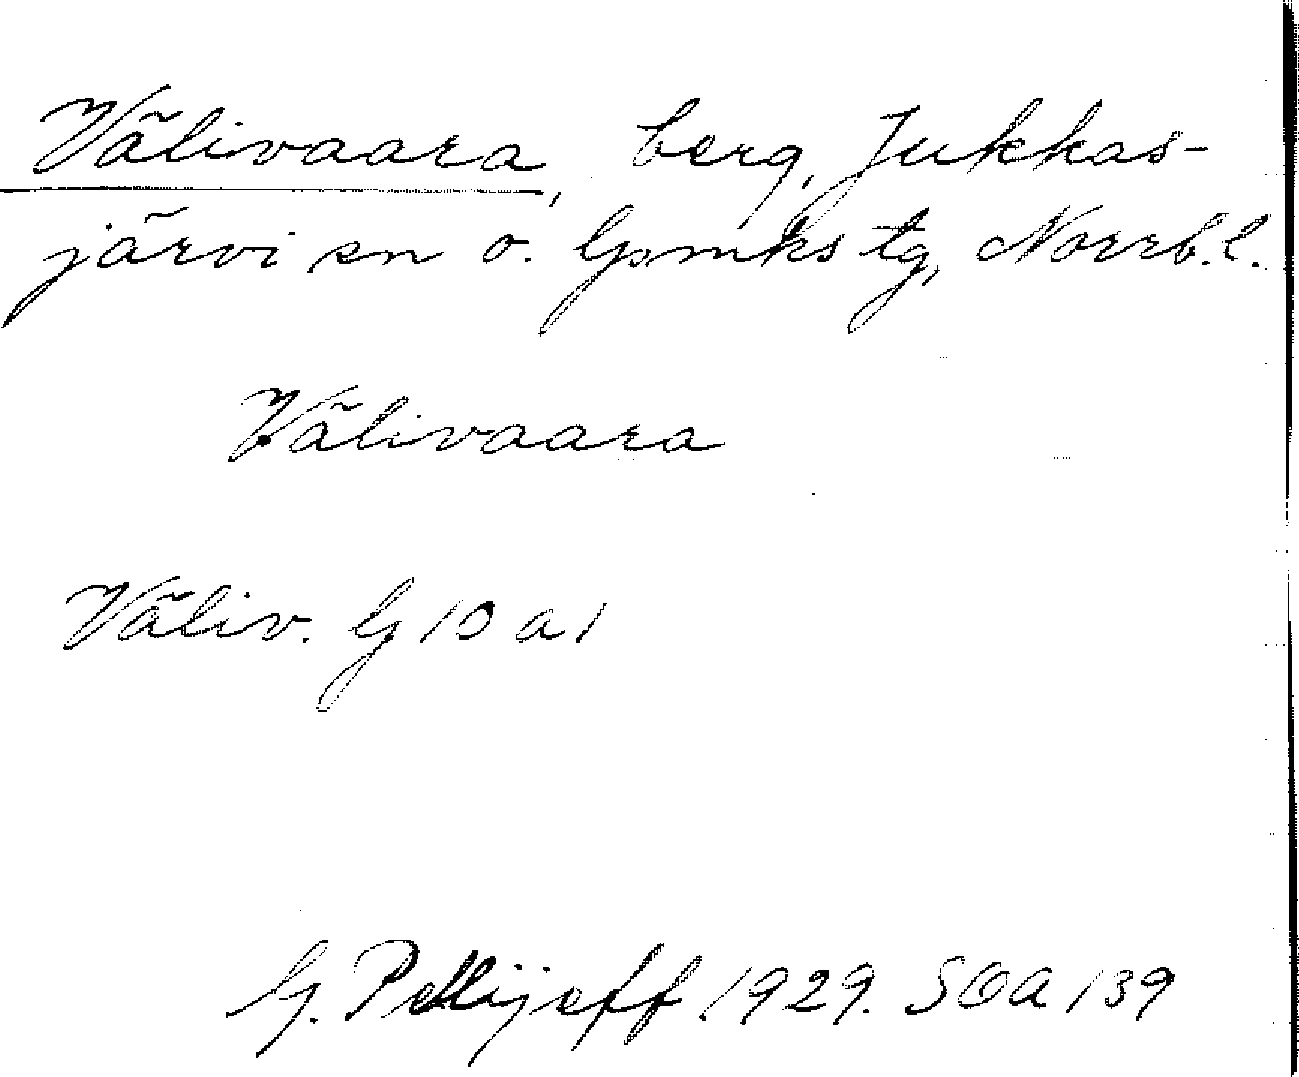 Välivaara, berg, Jukkas-
järvi sn o. Gsmks tg, Norrb. l.
Välivaara
Väliv. G 10 a 1
G. Pellijeff 1929. SOA 139